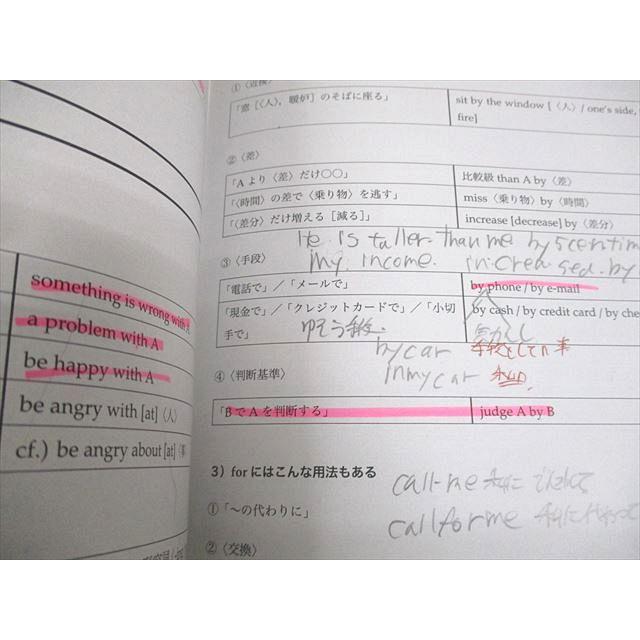 something is wrong with
a problem with A
be happy with A
be angry with [at]〈人〉
cf.) be angry about [at]
①〈近接〉
「窓［〈人〉，暖炉］のそばに座る」
sit by the window [〈人〉/ one's side,
fire]
②〈差〉
「A より〈差〉だけ○○」
比較級 than A by〈差〉
「〈時間〉の差で〈乗り物〉を逃す」
miss〈乗り物〉by〈時間〉
「〈差分〉だけ増える［減る］」
increase [decrease] by〈差分〉
He is taller than me by 5 centim
③〈手段〉
my income. increased by
「電話で」／「メールで」
by phone / by e-mail
「現金で」／「クレジットカードで」／「小切
手で」
by cash / by credit card / by che
by car
in my car
④〈判断基準〉
「B で A を判断する」
judge A by B
3）for にはこんな用法もある
call me
①「〜の代わりに」
call for me
②〈交換〉